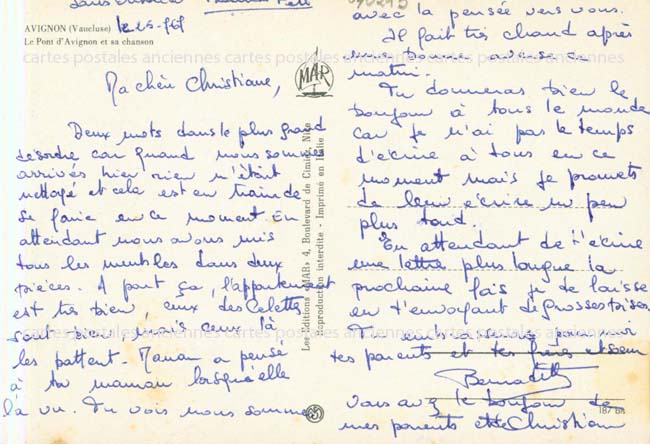 AVIGNON (Vaucluse) le 2.5-
Le Pont d'Avignon et sa chanson
Ma chère Christiane,
Deux mots dans le plus grand
désordre car quand nous sommes
arrivés hier rien n'était
nettoyé et cela est en train de
se faire en ce moment En
attendant nous avons mis
tous les meubles dans deux
pièces. A part ça, l'appartement
est très bien, ceux des Celettes
sont bien, mais ceux là
les battent. Maman a pensé
à ta maman lorsqu'elle
l'a vu. Tu vois nous sommes
avec la pensée vers vous.
Il fait très chaud après
une averse ce
matin.
Tu donneras bien le
bonjour à tous le monde
car je n'ai pas le temps
d'écrire à tous en ce
moment mais je promets
de leur écrire un peu
plus tard.
En attendant de t'écrire
une lettre plus longue la
prochaine fois je te laisse
en t'envoyant de grosses bises.
Tu bonsoir
tes parents et tes frères et soeur
Bernadette
vous avez le bonjour de
mes parents et de Christian
MAR
Les Editions «MAR» 4, Boulevard de Cimiez, Nice
Reproduction interdite - Imprimé en Italie
187 Bis
cartes postales anciennes cartes postales anciennes cartes postales anciennes
cartes postales anciennes cartes postales anciennes cartes postales anciennes